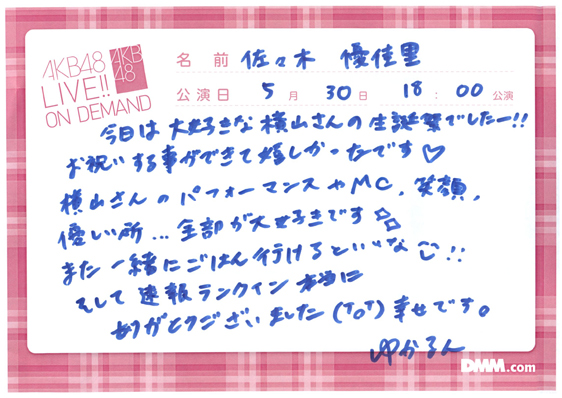 AKB48
LIVE!!
ON DEMAND
AKB
48
名前 佐々木 優佳里
公演日 5月30日 18:00公演
今日は大好きな横山さんの生誕祭でしたー!!
お祝いする事ができて嬉しかったです♡
横山さんのパフォーマンスやMC、笑顔、
優しい所…全部が大好きです☆
また一緒にごはん行けるといいな!!
そして速報ランクイン本当に
ありがとうございました(ToT)幸せです。
ゆかるん
DMM.com